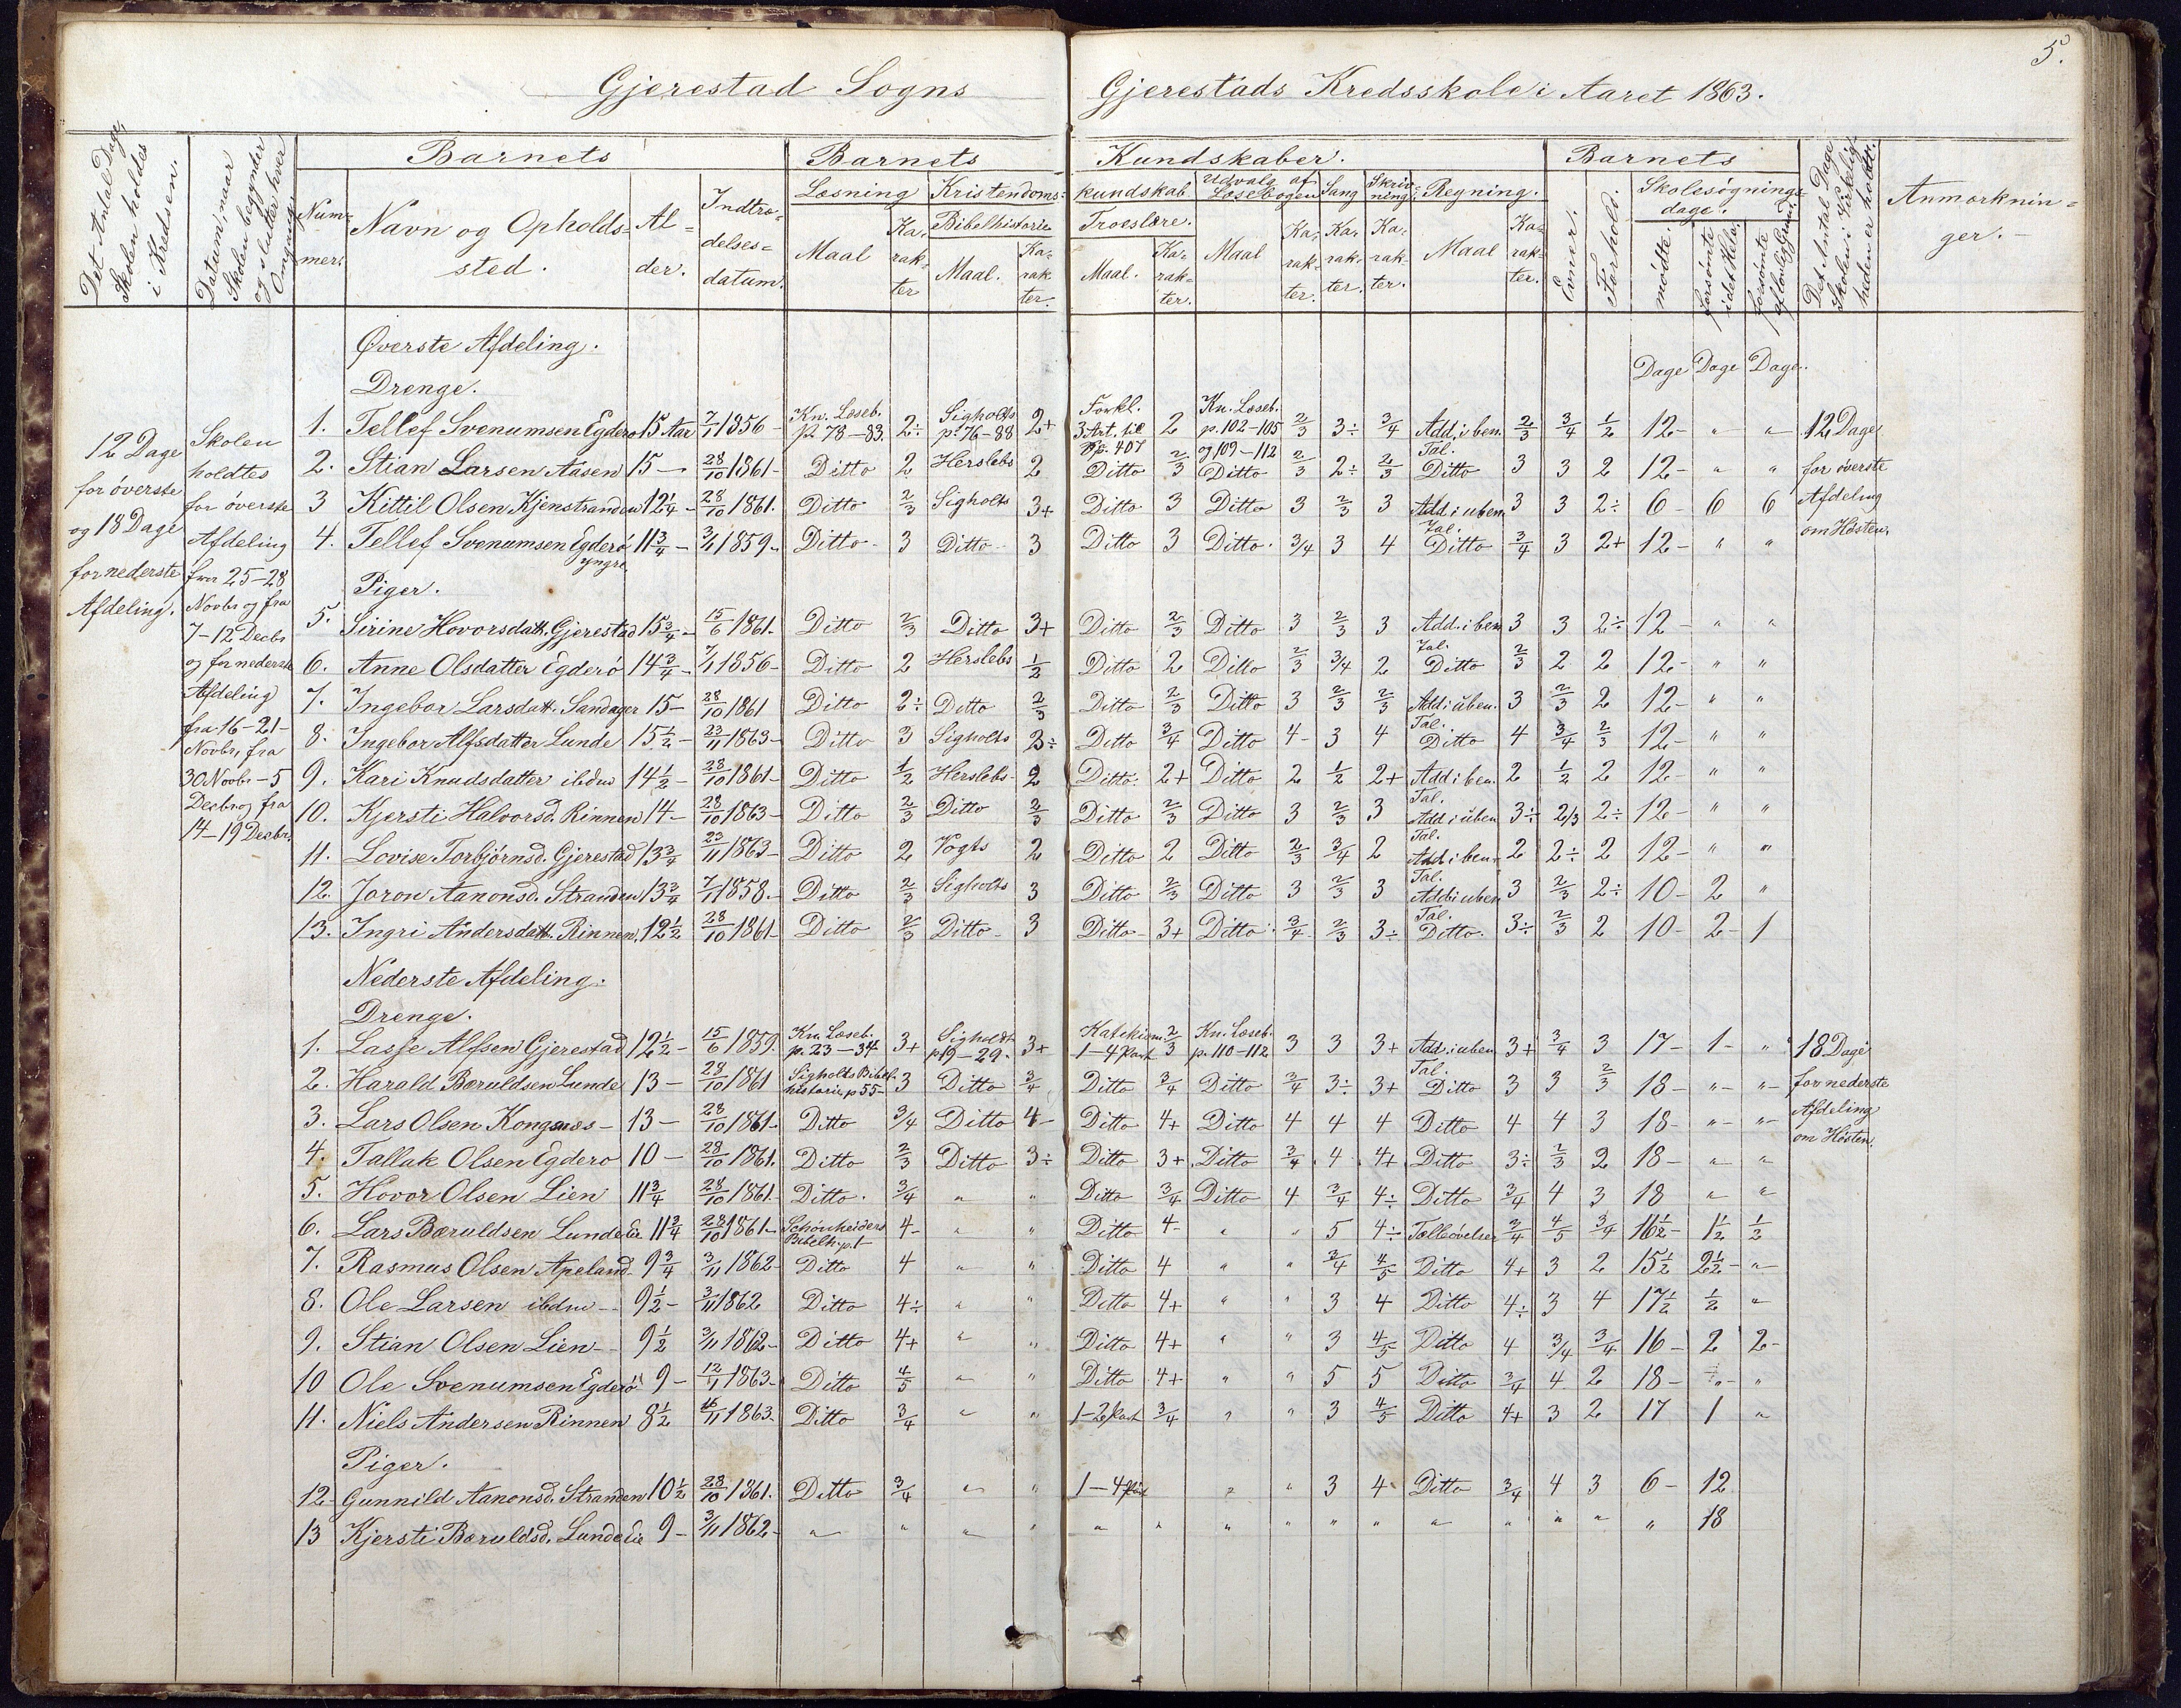 5.
Gjerestad Sogns Gjerestads Kredsskole i Aaret 1863.
Det Antal Dage Skolen holdes i Kredsen.
Datum, naar Skolen begynder og slutter hver Omgang.
Barnets
Num-mer.
Navn og Opholds-sted.
Al-der.
Indtræ-delses-datum.
Barnets Kundskaber.
Læsning Maal Ka-rak-ter
Kristendoms-kundskab
Bibelhistorie Maal. Ka-rak-ter.
Troeslære. Maal. Ka-rak-ter.
Udvalg af Læsebogen Maal Ka-rak-ter.
Sang Ka-rak-ter.
Skriv-ning Ka-rak-ter.
Regning. Maal Ka-rak-ter.
Barnets
Evner.
Forhold.
Skolesøgnings-dage.
mødte.
forsømte i det Hele.
forsømte af lovlig Grund.
Det Antal Dage Skolen i Virkelig-heden er holdt.
Anmærknin-ger.
Øverste Afdeling.
Dage Dage Dage
Drenge.
12 Dage for øverste og 18 Dage for nederste Afdeling.
Skolen holdtes for øverste Afdeling fra 25-28 Novbr og fra 7-12 Decbr og for nederste Afdeling fra 16-21 Novbr, fra 30 Novbr-5 Decbr og fra 14-19 Decbr.
1. Tellef Svenumsen Egderø 15 Aar 7/1 1856 Kn. Læseb. p. 78-83. 2÷ Sigholts p. 76-88 2+ Forkl. 3 Art. til Sp. 407 2 Kn. Læseb. p. 102-105 og 109-112 2/3 3÷ 3/4 Add. i ben. Tal. 2/3 3/4 1/2 12 " " 12 Dage for øverste Afdeling om Høsten.
2. Stian Larsen Aasen 15 28/10 1861 Ditto 2 Herslebs 2 Ditto 2/3 Ditto 2/3 2÷ 2/3 Ditto 3 3 2 12 " "
3 Kittil Olsen Kjenstranden 12 1/4 28/10 1861. Ditto 2/3 Sigholts 3+ Ditto 3 Ditto 3 2/3 3 Add i uben Tal. 3 3 2÷ 6 6 6
4. Tellef Svenumsen Egderø yngre 11 3/4 3/11 1859 Ditto 3 Ditto 3 Ditto 3 Ditto 3/4 3 4 Ditto 3/4 3 2+ 12 " "
Piger.
5. Sirine Hovorsdatt. Gjerestad 15 3/4 15/6 1861. Ditto 2/3 Ditto 3+ Ditto 2/3 Ditto 3 2/3 3 Add. i ben Tal. 3 3 2÷ 12 " "
6. Anne Olsdatter Egderø 14 3/4 7/1 1856 Ditto 2 Herslebs 1/2 Ditto 2 Ditto 2/3 3/4 2 Ditto 2/3 2 2 12 " "
7. Ingebor Larsdatt. Sandager 15 28/10 1861 Ditto 2÷ Ditto 2/3 Ditto 2/3 Ditto 3 2/3 2/3 Add i uben. Tal. 3 2/3 2 12 " "
8. Ingebor Alfsdatter Lunde 15 1/2 23/11 1863 Ditto 3 Sigholts 3÷ Ditto 3/4 Ditto 4 3 4 Ditto 4 3/4 2/3 12 " "
9. Kari Knudsdatter ibdm 14 1/2 28/10 1861 Ditto 1/2 Herslebs 2 Ditto 2+ Ditto 2 1/2 2+ Add i ben. Tal. 2 1/2 2 12 " "
10. Kjersti Halvorsd. Rinnen 14 28/10 1863 Ditto 2/3 Ditto 2/3 Ditto 2/3 Ditto 3 2/3 3 Add i uben Tal. 3÷ 2/3 2÷ 12 " "
11. Lovise Torbjørnsd. Gjerestad 13 3/4 23/11 1863 Ditto 2 Vogts 2 Ditto 2 Ditto 2/3 3/4 2 Add i ben Tal. 2 2÷ 2 12 " "
12. Joron Aanonsd. Stranden 13 3/4 7/1 1858 Ditto 2/3 Sigholts 3 Ditto 2/3 Ditto 3 2/3 3 Add i uben Tal. 3 2/3 2÷ 10 2 "
13. Ingri Andersdatt. Rinnen 12 1/2 28/10 1861 Ditto 2/3 Ditto 3 Ditto 3+ Ditto 3/4 2/3 3÷ Ditto. 3÷ 2/3 2 10 2 1
Nederste Afdeling.
Drenge.
1. Lasse Alfsen Gjerestad 12 1/2 15/6 1859. Kn. Læseb. p. 23-34 3+ Sigholdt p 19-29. 3+ Katekism. 1-4 Part 2/3 Kn. Læseb. p. 110-112 3 3 3+ Add. i uben Tal. 3+ 3/4 3 17 1 " 18 Dage for nederste Afdeling om Høsten.
2. Harald Bæruldsen Lunde 13 28/10 1861 Sigholts Bibel-historie p 55 3 Ditto 3/4 Ditto 3/4 Ditto 3/4 3÷ 3+ Ditto 3 3 2/3 18 " "
3. Lars Olsen Kongsnæs 13 28/10 1861 Ditto 3/4 Ditto 4 Ditto 4+ Ditto 4 4 4 Ditto 4 4 3 18 " "
4. Tallak Olsen Egderø 10 28/10 1861. Ditto 2/3 Ditto 3÷ Ditto 3+ Ditto 3/4 4 4+ Ditto 3÷ 2/3 2 18 " "
5. Hovor Olsen Lien 11 3/4 28/10 1861 Ditto. 3/4 " " Ditto 3/4 Ditto 4 3/4 4÷ Ditto 3/4 4 3 18 " "
6. Lars Bæruldsen Lundelie 11 3/4 28/10 1861 Schönheiders Bibelh. p. 1 4 " " Ditto 4 " " 5 4÷ Tælleøvelser 3/4 4/5 3/4 16 1/2 1 1/2 1/2
7. Rasmus Olsen Apeland 9 3/4 3/11 1862 Ditto 4 " " Ditto 4 " " 3/4 4/5 Ditto 4+ 3 2 15 1/2 2 1/2 "
8. Ole Larsen ibdm 9 1/2 3/11 1862 Ditto 4÷ " " Ditto 4+ " " 3 4 Ditto 4÷ 3 4 17 1/2 1/2 "
9. Stian Olsen Lien 9 1/2 3/11 1862 Ditto 4+ " " Ditto 4+ " " 3 4/5 Ditto 4 3/4 3/4 16 2 2
10 Ole Svenumsen Egderø 9 12/1 1863 Ditto 4/5 " " Ditto 4+ " " 5 5 Ditto 3/4 4 2 18 " "
11. Niels Andersen Rinnen 8 1/2 16/11 1863. Ditto 3/4 " " 1-2 Part 3/4 " " 3 4/5 Ditto 4+ 3 2 17 1 "
Piger.
12 Gunnild Aanonsd. Stranden 10 1/2 28/10 1861. Ditto 3/4 " " 1-4 Part " " 3 4 Ditto 3/4 4 3 6 12
13 Kjersti Bæruldsd. Lundelie 9 3/11 1862 " " " " " " " " " " " " " " " 18